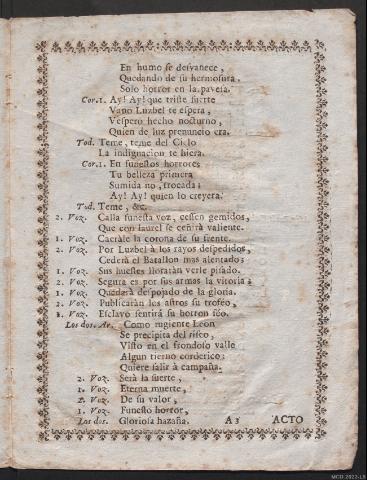 En humo se desvanece,
Quedando de su hermosura,
Solo horror en la pavesa.
Cor. 1. Ay! Ay! que triste suerte
Vano Luzbel te espera,
Vespero hecho nocturno,
Quien de luz prenuncio era.
Tod. Teme, teme del Cielo
La indignacion te hiera.
Cor. 1. En funestos horrores
Tu belleza primera
Sumida no, trocada;
Ay! Ay! quien lo creyera.
Tod. Teme, &c.
2. Voz. Calla funesta voz, cessen gemidos,
Que con laurel se ceñirà valiente.
1. Voz. Caeràle la corona de su frente.
2. Voz. Por Luzbel à los rayos despedidos,
Cederà el Batallon mas alentado;
1. Voz. Sus huestes lloraràn verle pisado.
2. Voz. Segura es por sus armas la vitoria;
1. Voz. Quedarà despojado de la gloria.
2. Voz. Publicaràn los astros su troféo,
1. Voz. Esclavo sentirà su horror féo.
Los dos. Ar. Como rugiente Leon
Se precipita del risco,
Visto en el frondoso valle
Algun tierno corderico;
Quiere salir à campaña.
2. Voz. Serà la suerte,
1. Voz. Eterna muerte,
2. Voz. De su valor,
1. Voz. Funesto horror,
Los dos. Gloriosa hazaña. A3 ACTO
MCD 2022-L5